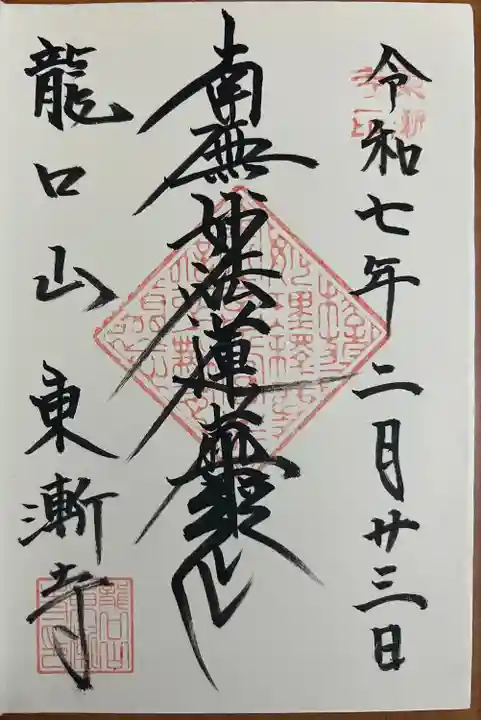 令和七年二月廿三日
南無妙法蓮華經
龍口山東漸寺